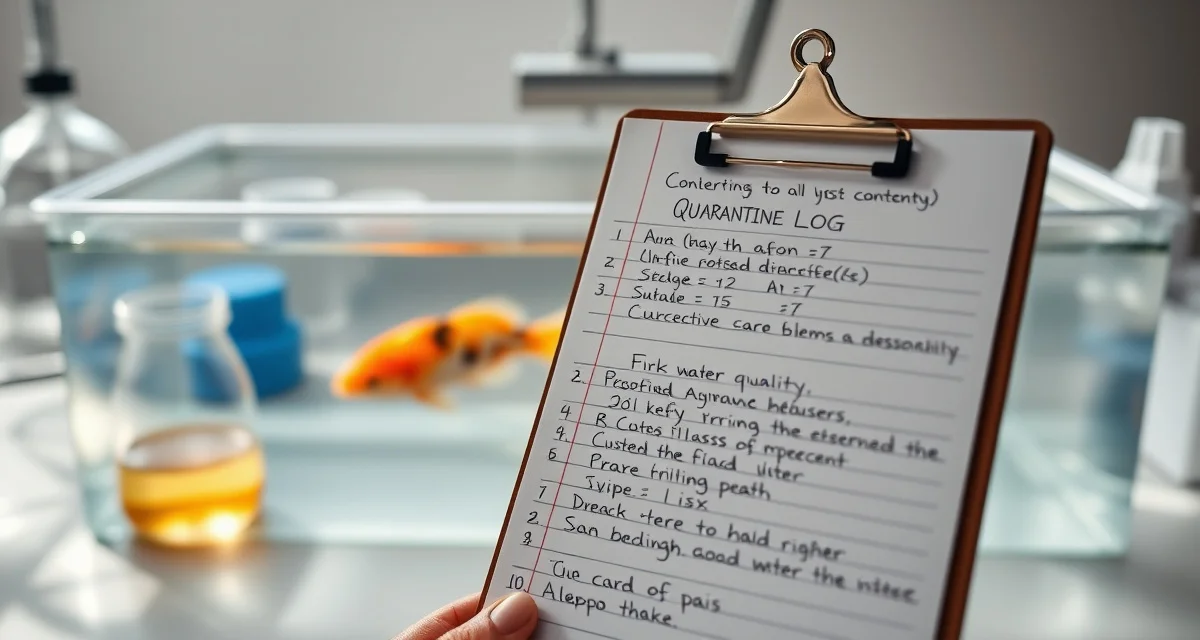 Conlerting to all yest contenty)
QUARANTINE LOG
1 Aun (hay th afon =7
Unfie rotsed diarctfe(ts)
2 Stclge = 12 A1 =7
3. Sutale = 15 =7
Curcective care blems a dessonlity
Firk water quality,
2. Proofied Agrvanc heausers,
20l kefy rrring the etsermed the
4 R Cotes illasss of mpeecent
9. Custed the fiacd uliter
6 Prare trilling peath
Jvipe = lisx
7 Dreack tere to hald righer
2. San bedingh good wnter the
8.
Tue card of pais
10 Aleppo thake.